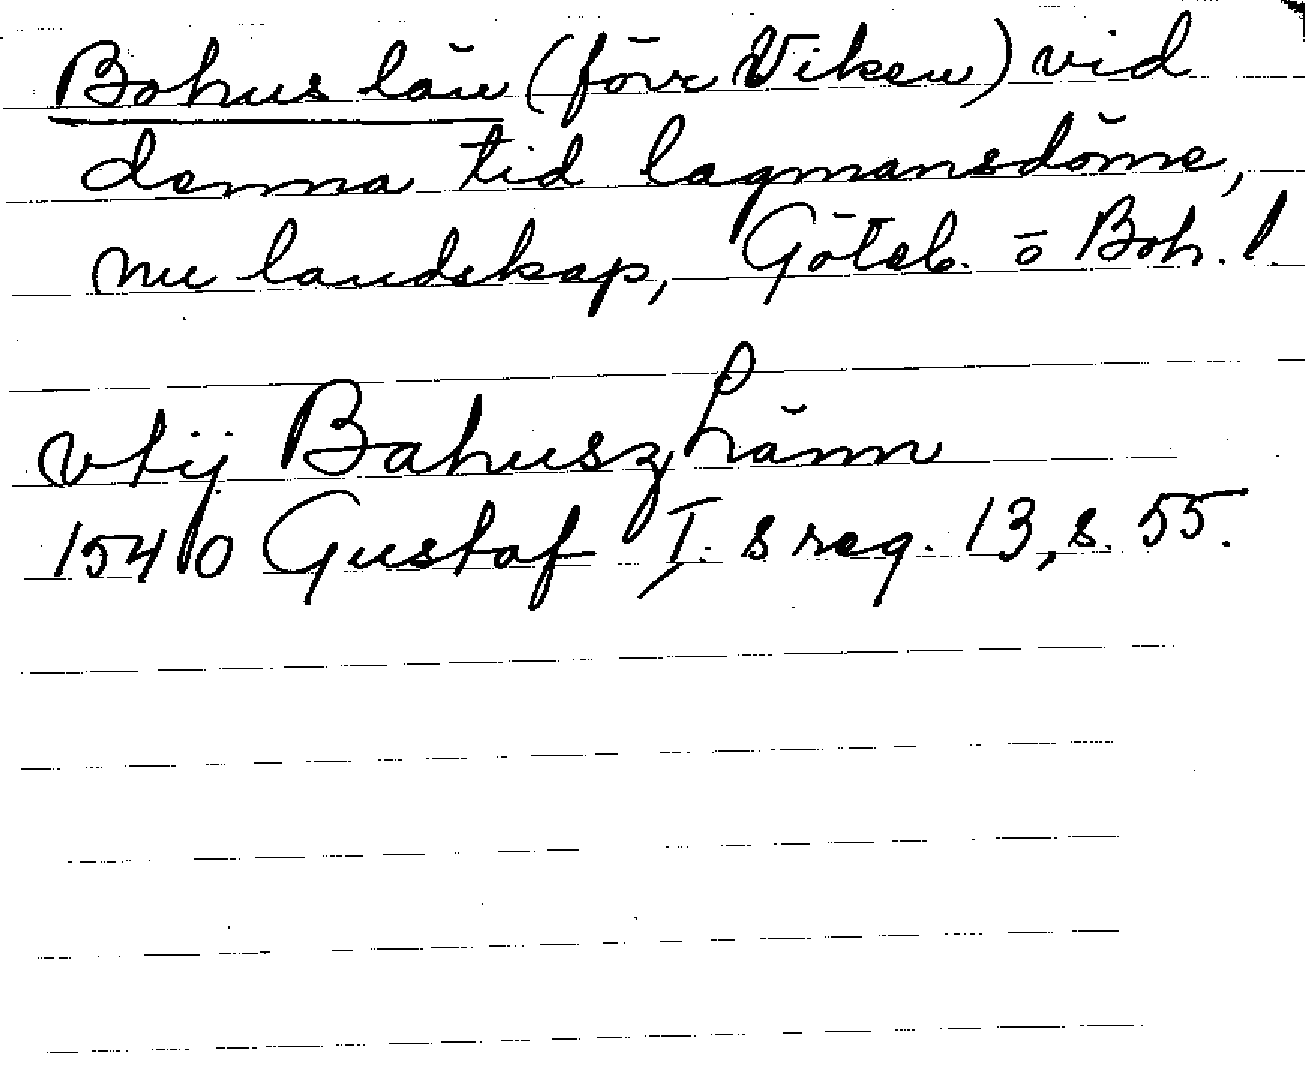 Bohus län (förr Viken) vid
denna tid lagmansdöme,
nu landskap, Göteb. o Boh. l.
vtij Bahuszhänn
1540 Gustaf I:s reg. 13, s. 55.